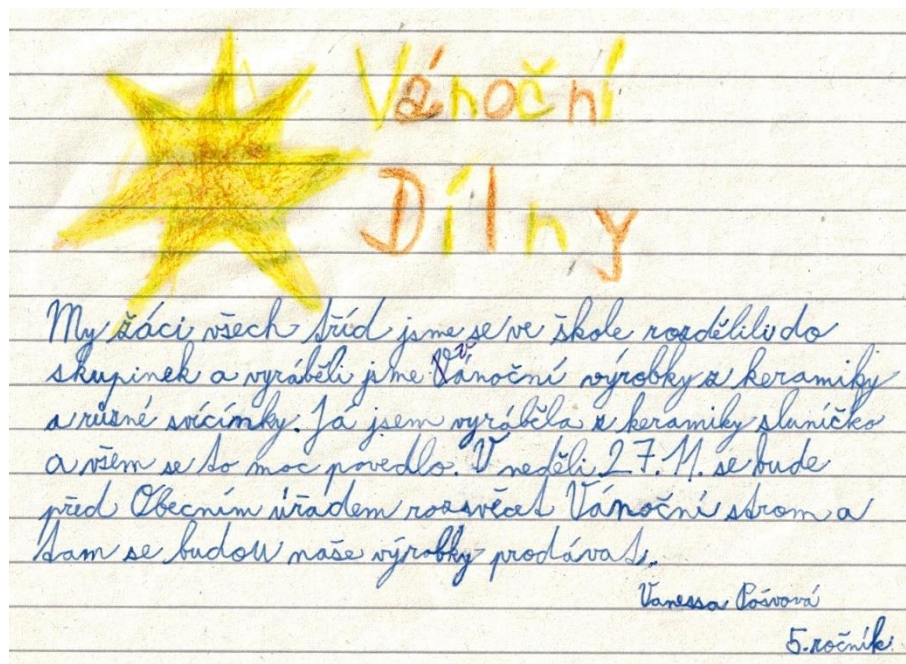 Vánoční
Dílny
My žáci všech tříd jsme se ve škole rozdělili do
skupinek a vyráběli jsme vánoční výrobky z keramiky
a různé svícínky. Já jsem vyráběla z keramiky sluníčko
a všem se to moc povedlo. V neděli 27.11. se bude
před Obecním úřadem rozsvěcet Vánoční strom a
tam se budou naše výrobky prodávat.
Vanessa Pošvová
5. ročník